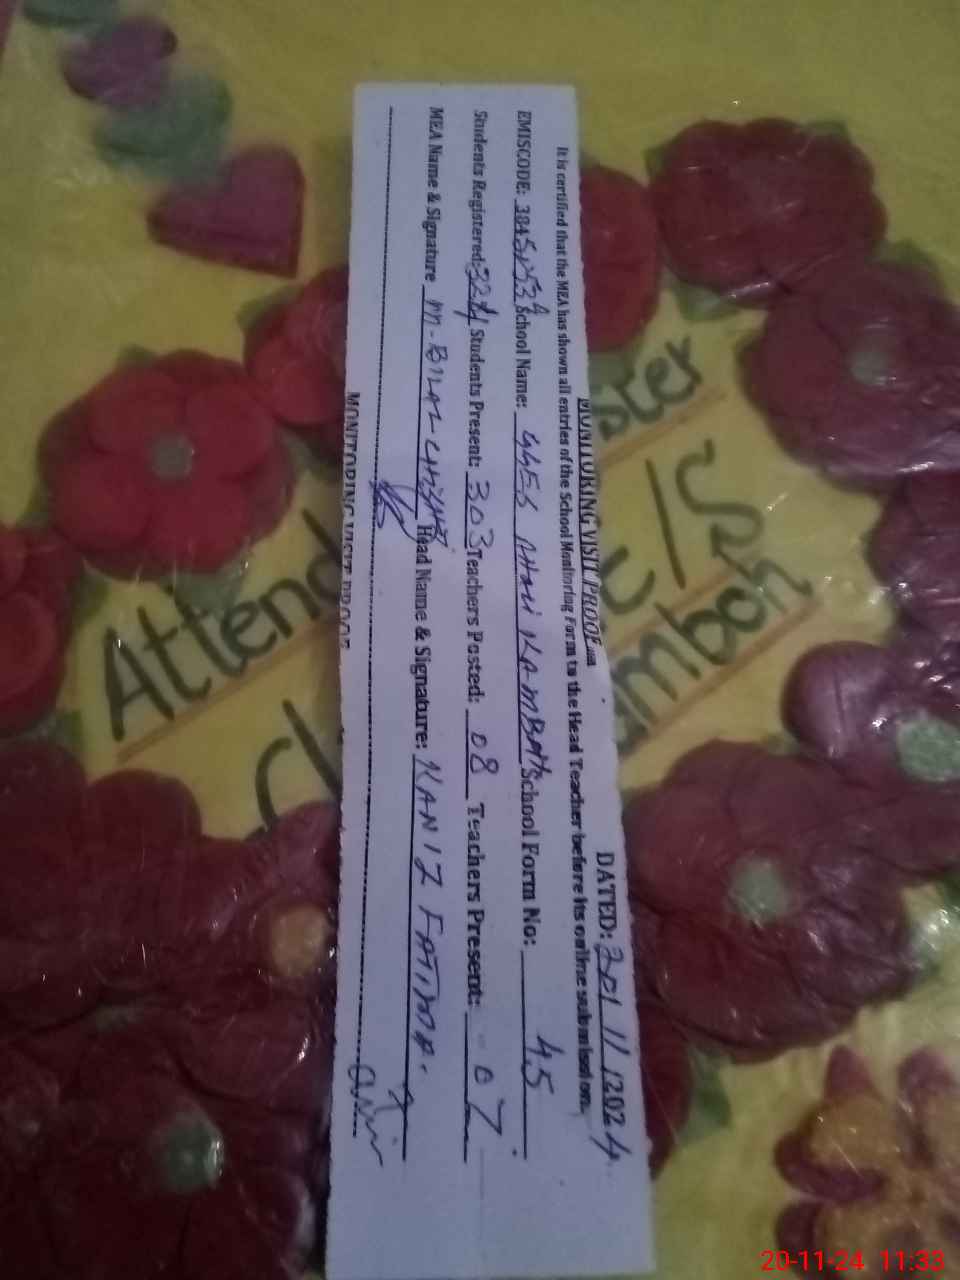 MONITORING VISIT PROOF
DATED: 20/11/2024
It is certified that the MEA has shown all entries of the School Monitoring Form to the Head Teacher before its online submission.
EMISCODE: School Name: KAMBOH School Form No: 45
Students Registered: Students Present: 303 Teachers Posted: 08 Teachers Present: 07
MEA Name & Signature M-BILAL Head Name & Signature: KANIZ FATIMA.
MONITORING VISIT PROOF
Attend
ster
mboh
20-11-24 11:33